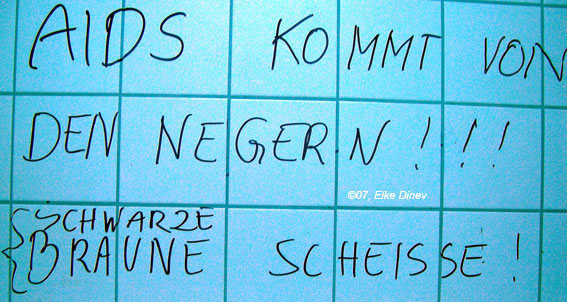 AIDS KOMMT VON
DEN NEGERN!!!
©07, Elke Dinev
SCHWARZE
BRAUNE SCHEISSE!